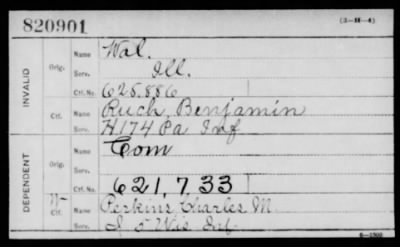 820901 (3-H-4)
INVALID
Orig.
Name Wal.
Serv. Ill.
Ctf. No. 625,886
Ctf.
Name Ruch, Benjamin
Serv. H 174 Pa Inf
DEPENDENT
Orig.
Name Com
Serv.
621,733
W
Ctf.
Name Perkins Charles M.
Serv. I 5 Wis Inf